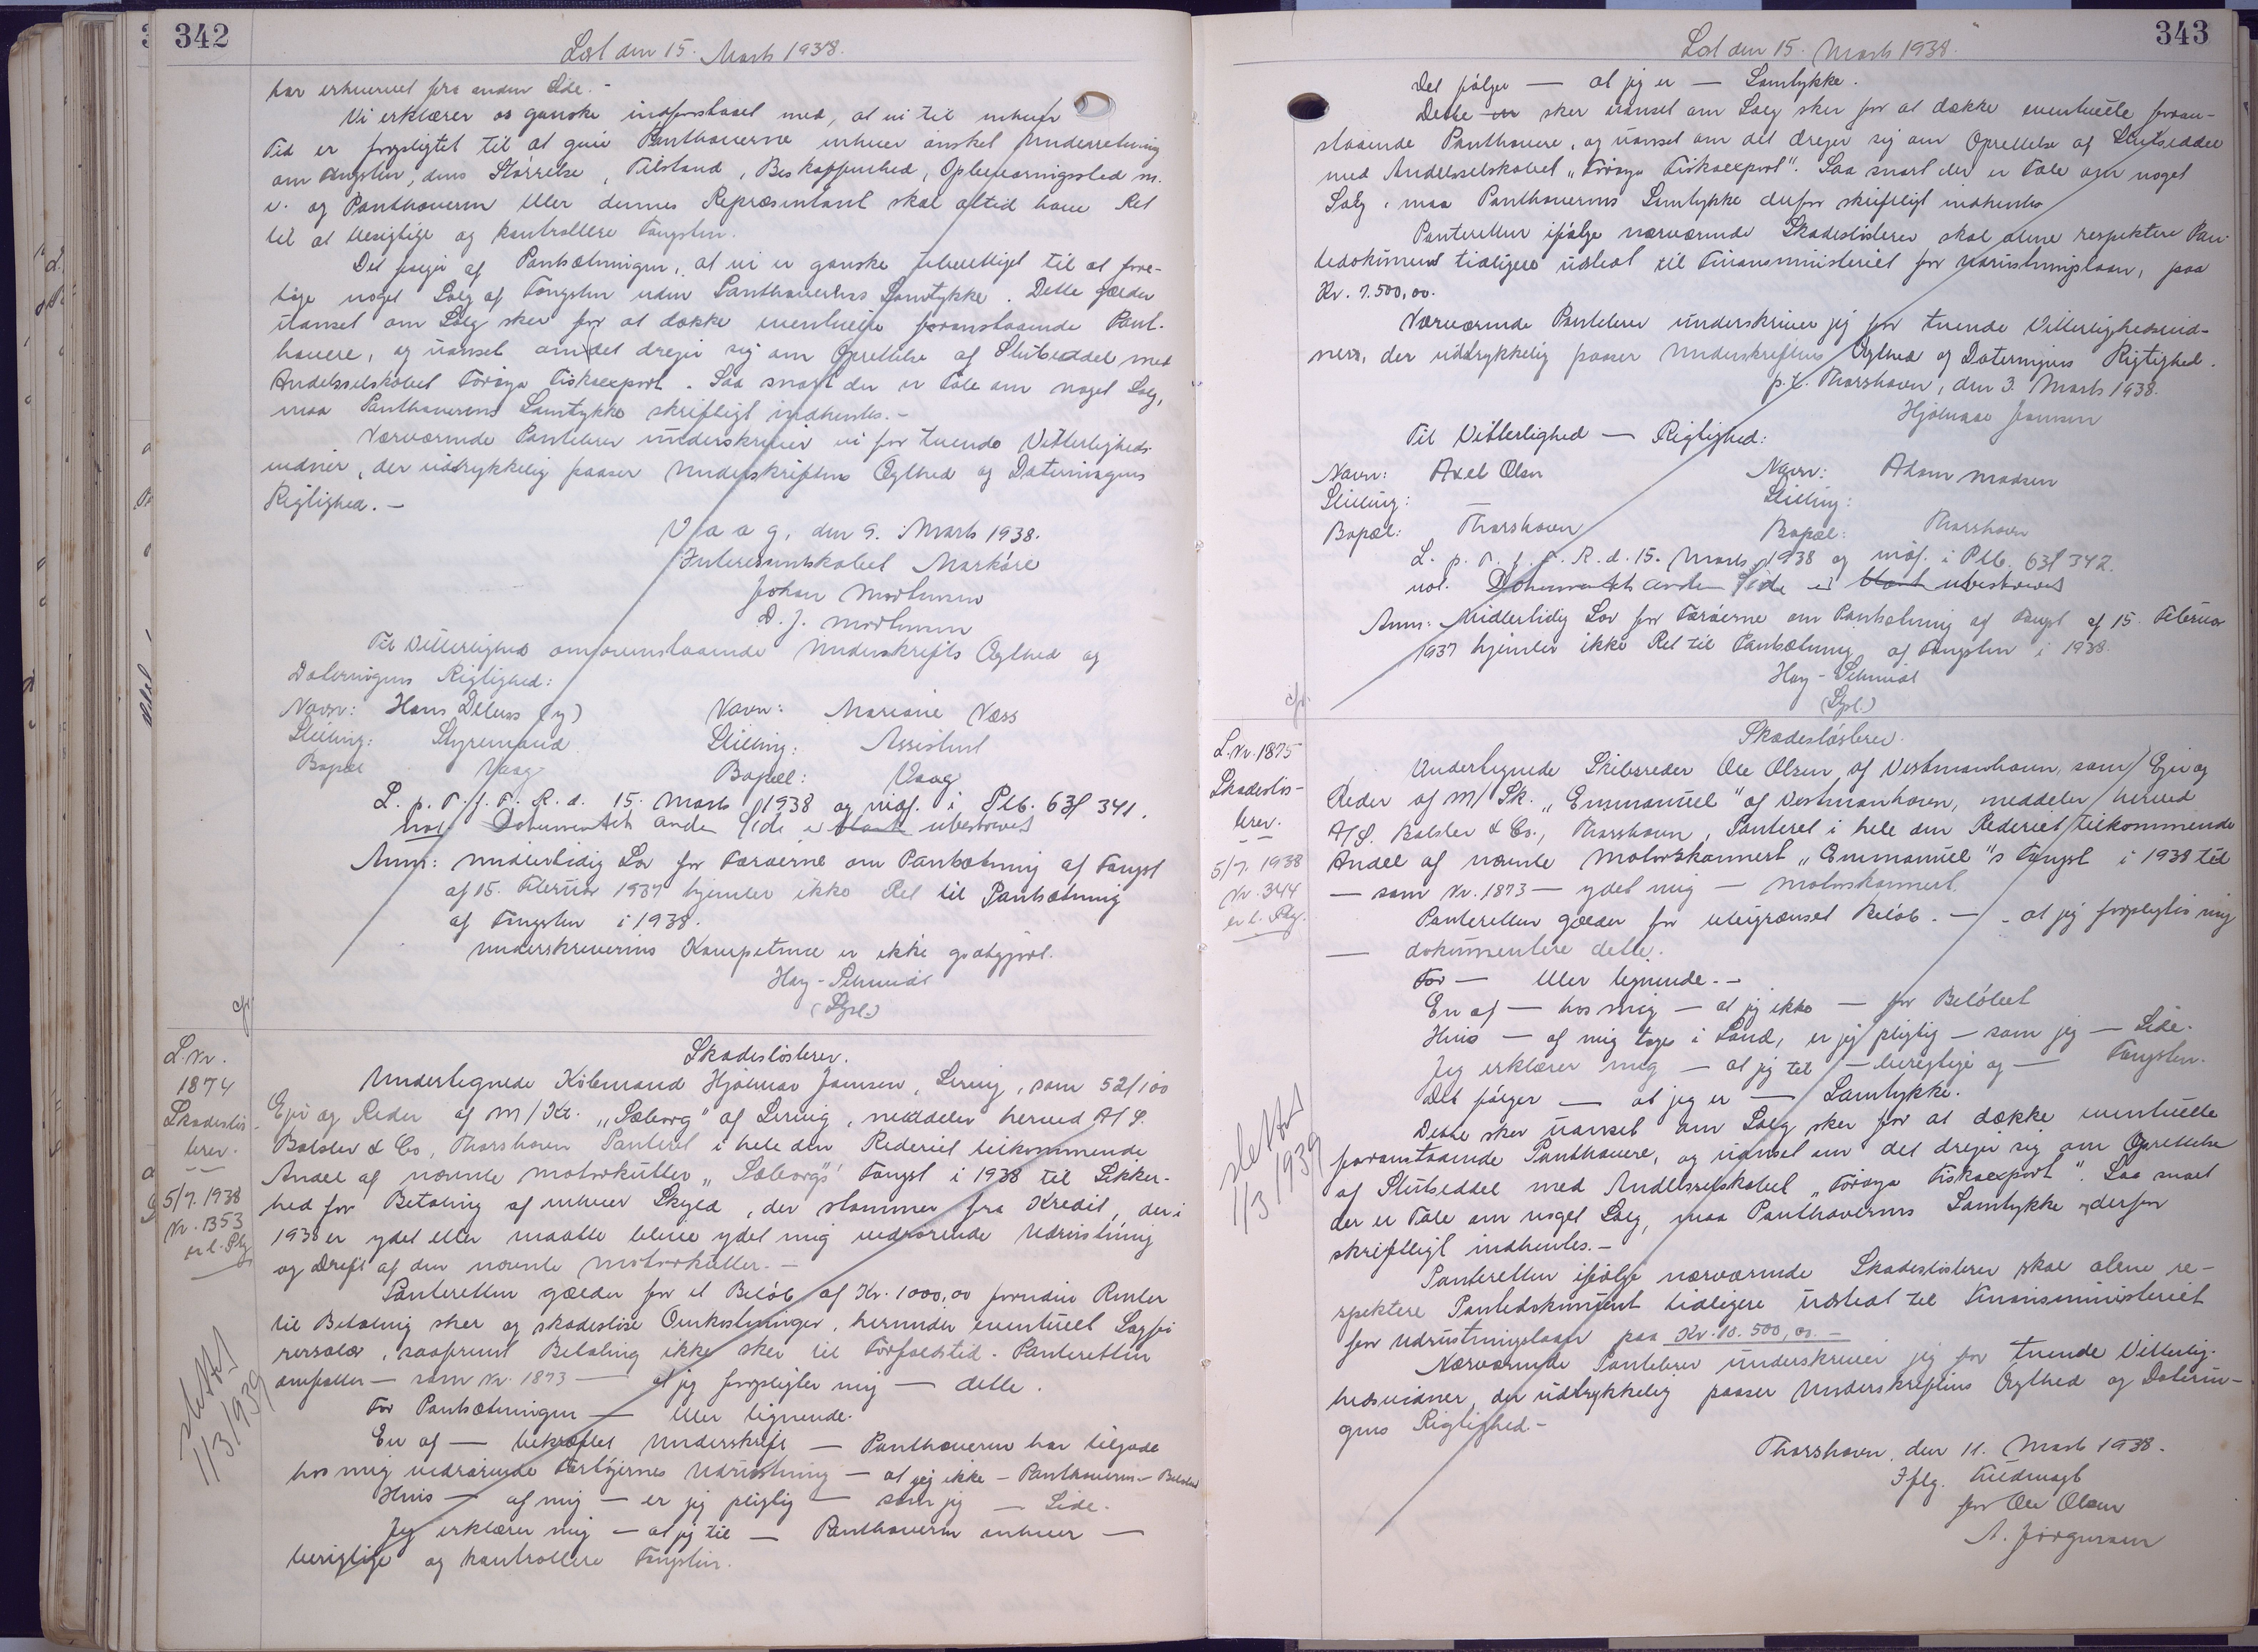 342
Læst den 15. Marts 1938.
har erhvervet fra anden Side.-
Vi erklærer os ganske indforstaaet med, at vi til enhver
Tid er forpligtet til at give Panthaverne enhver ønsket Underretning
om Fangsten, dens Størrelse, Tilstand, Beskaffenhed, Opbevaringssted m.
v. og Panthaveren eller dennes Repræsentant skal altid have Ret
til at besigtige og kontrollere Fangsten.
Det følger af Pantsætningen, at vi er ganske uberettiget til at fore-
tage noget Salg af Fangsten uden Panthaverens Samtykke. Dette gælder
uanset om Salg sker for at dække eventuelle foranstaaende Pant-
havere, og uanset om det drejer sig om Oprettelse af Slutseddel med
Andelsselskabet Föroya Fiskaexport. Saa snart der er Tale om noget Salg,
maa Panthaverens Samtykke skriftligt indhentes.-
Nærværende Pantebrev underskriver vi for tvende Vitterligheds-
vidner, der udtrykkelig paaser Underskriftens Ægthed og Dateringens
Rigtighed.-
Vaag, den 9. Marts 1938.
Interessentskabet Markáre
Johan Mortensen
D. J. Mortensen
Til Vitterlighed om ovenstaaende Underskrifts Ægthed og
Dateringens Rigtighed:
Navn: Hans Debess (y) Navn: Mariane Næss
Stilling: Styrmand Stilling: Assistent
Bopæl Vaag Bopæl: Vaag
L. p. T. f. F. R. d. 15. Marts 1938 og indf. i Plb. 63 f 341.
not. Dokumentets anden Side er blank ubeskrevet
Anm: Midlertidig Lov for Færøerne om Pantsætning af Fangst
af 15. Februar 1937 hjemler ikke Ret til Pantsætning
af Fangsten i 1938.
Underskriverens Kompetence er ikke godtgjort.
Hay-Schmidt
(Spl.)
cfr.
L. Nr.
1874
Skadesløs-
brev.
5/7. 1938
Nr. 1353
er l. Ptg.
slettet
1/3 1939
Skadesløsbrev.
Undertegnede Købmand Hjalmar Jensen, Lervig, som 52/100
Ejer og Reder af M/Kt. "Sæborg" af Lervig, meddeler herved A/S.
Balslev & Co, Thorshavn Panteret i hele den Rederiet tilkommende
Andel af nævnte Motorkutter "Sæborgs" Fangst i 1938 til Sikker-
hed for Betaling af enhver Skyld, der stammer fra Kredit, der i
1938 er ydet eller maatte blive ydet mig vedrørende Udrustning
og Drift af den nævnte Motorkutter.-
Panteretten gælder for et Beløb af Kr. 1000,00 foruden Renter
til Betaling sker og skadesløse Omkostninger, herunder eventuelt Sagfø-
rersalær, saafremt Betaling ikke sker til Forfaldstid. Panteretten
omfatter — som Nr. 1873 — at jeg forpligter mig — dette.
For Pantsætningen — eller lignende.
En af — bekræftet Underskrift — Panthaveren har tilgode
hos mig vedrørende Fartøjernes Udrustning — at jeg ikke — Panthaveren — Beløbet
Hvis — af mig — er jeg pligtig — som jeg — Side.
Jeg erklærer mig — at jeg til — Panthaveren enhver —
besigtige og kontrollere Fangsten.
343
Læst den 15. Marts 1938.
Det følger — at jeg er — Samtykke.
Dette er sker uanset om Salg sker for at dække eventuelle foran-
staaende Panthavere, og uanset om det drejer sig om Oprettelse af Slutseddel
med Andelsselskabet "Föroya Fiskaexport". Saa snart der er Tale om noget
Salg, maa Panthaverens Samtykke derfor skriftligt indhentes
Panteretten ifølge nærværende Skadesløsbrev skal alene respektere Pan-
tedokument tidligere udstedt til Finansministeriet for Udrustningslaan, paa
Kr. 7.500,00.
Nærværende Pantebrev underskriver jeg for tvende Vitterlighedsvid-
ner, der udtrykkelig paaser Underskriftens Ægthed og Dateringens Rigtighed.
p.t. Thorshavn, den 3. Marts 1938.
Hjalmar Jensen
Til Vitterlighed — Rigtighed:
Navn: Axel Olsen Navn: Adam Madsen
Stilling: Stilling:
Bopæl: Thorshavn Bopæl: Thorshavn
L. p. T. f. F. R. d. 15. Marts 1938 og indf. i Plb. 63 f 342.
not. Dokumentets anden Side er blank ubeskrevet
Anm: Midlertidig Lov for Færøerne om Pantsætning af Fangst af 15. Februar
1937 hjemler ikke Ret til Pantsætning af Fangsten i 1938.
Hay-Schmidt
(Spl.)
cfr.
L. Nr. 1875
Skadesløs-
brev.
5/7. 1938
Nr. 344
er l. Ptg.
slettet
1/3 1939
Skadesløsbrev.
Undertegnede Skibsreder Ole Olsen, af Vestmanhavn, som Ejer og
Reder af M/Sk. "Emmanuel" af Vestmanhavn, meddeler herved
A/S. Balslev & Co., Thorshavn, Panteret i hele den Rederiet tilkommende
Andel af nævnte Motorskonnert "Emmanuel"s Fangst i 1938 til
— som Nr. 1873 — ydet mig — Motorskonnert.
Panteretten gælder for ubegrænset Beløb. — at jeg forpligter mig
— dokumentere dette.
For — eller lignende.-
En af — hos mig — at jeg ikke — for Beløbet
Hvis — af mig tages i Land, er jeg pligtig — som jeg — Side.
Jeg erklærer mig — at jeg til — besigtige og — Fangsten.
Det følger — at jeg er — Samtykke.
Dette sker uanset om Salg sker for at dække eventuelle
foranstaaende Panthavere, og uanset om det drejer sig om Oprettelse
af Slutseddel med Andelsselskabet "Föroya Fiskaexport". Saa snart
der er Tale om noget Salg, maa Panthaverens Samtykke derfor
skriftligt indhentes.-
Panteretten ifølge nærværende Skadesløsbrev skal alene re-
spektere Pantedokument tidligere udstedt til Finansministeriet
for Udrustningslaan paa Kr. 10.500,00.-
Nærværende Pantebrev underskriver jeg for tvende Vitterlig-
hedsvidner, der udtrykkelig paaser Underskriftens Ægthed og Daterin-
gens Rigtighed.-
Thorshavn, den 11. Marts 1938.
Iflg. Fuldmagt
for Ole Olsen
A. Jørgensen